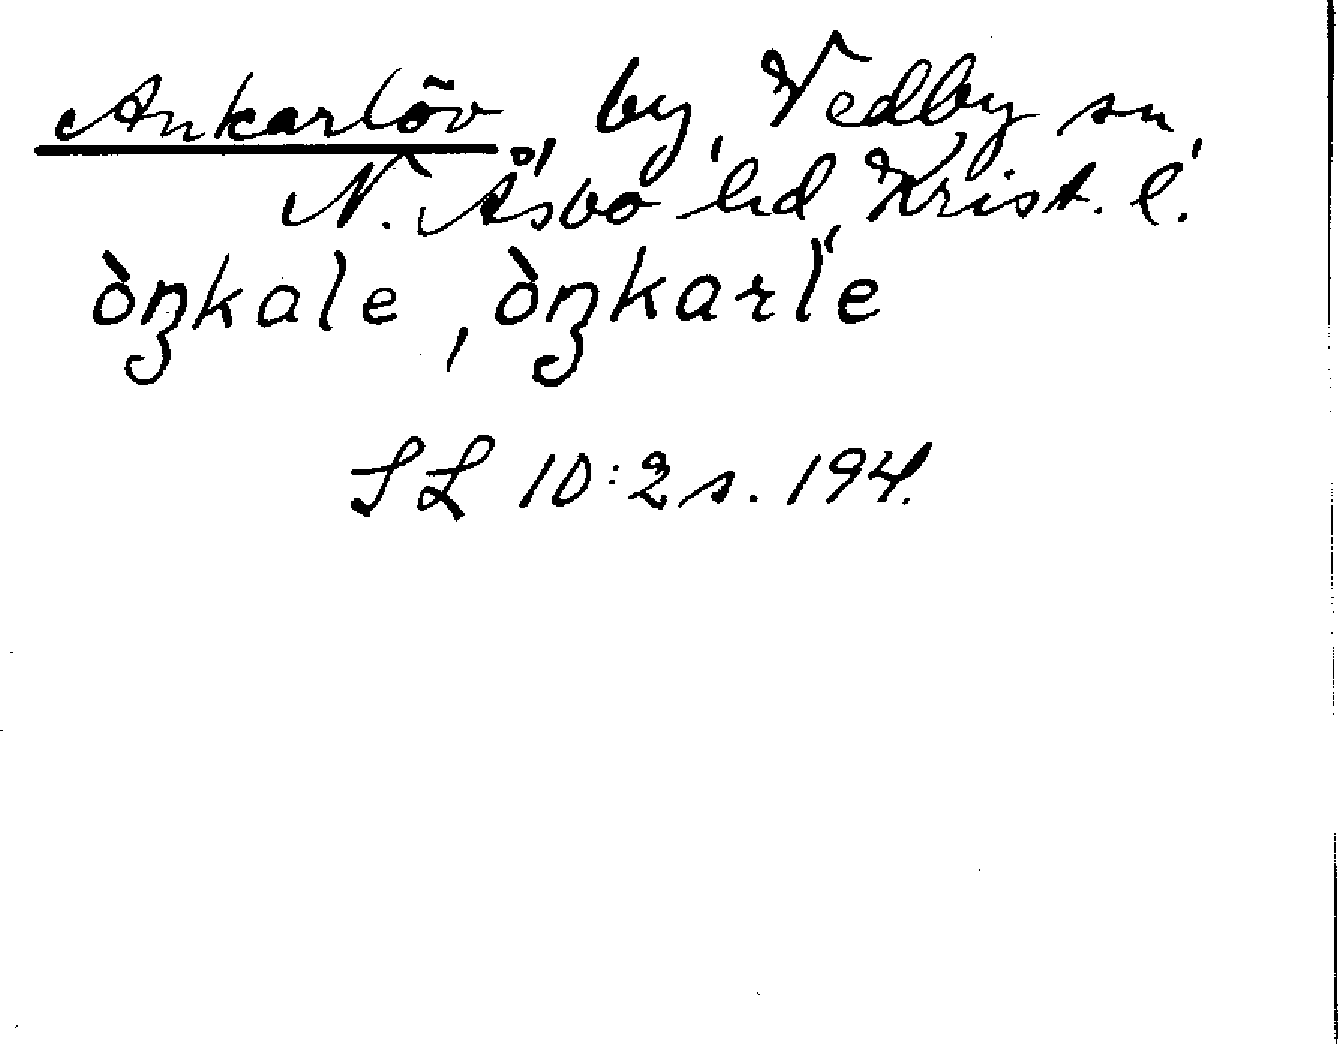 Ankarlöv, by, Vedby sn,
N. Åsbo hd, Krist. l.
òŋkale, òŋkarle
SL 10:2 s. 194.